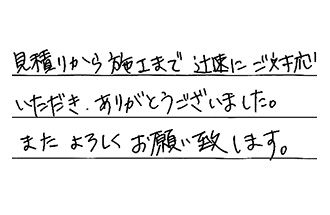 見積りから施工まで 迅速に ご対応
いただき、ありがとうございました。
また よろしく お願い致します。